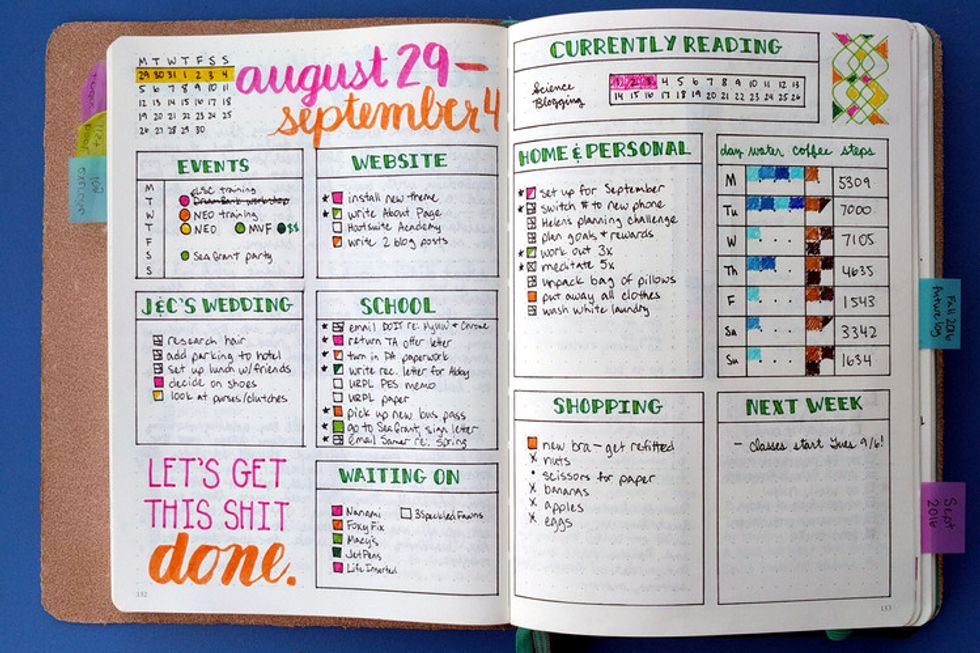 M T W T F S S
29 30 31 1 2 3 4
5 6 7 8 9 10 11
12 13 14 15 16 17 18
19 20 21 22 23 24 25
26 27 28 29 30
august 29 –
september 4
EVENTS
M
T
W
T
F
S
S
training
NEO training
NEO MVF $$
Sea Grant party
WEBSITE
install new theme
write About Page
Hootsuite Academy
write 2 blog posts
J&C'S WEDDING
research hair
add parking to hotel
set up lunch w/friends
decide on shoes
look at purses/clutches
SCHOOL
email DOIT re: MyUW + Chrome
return TA offer letter
turn in DA paperwork
write rec. letter for Abby
URPL PES memo
URPL paper
pick up new bus pass
go to Sea Grant, sign letter
email Samer re: Spring
LET'S GET
THIS SHIT
done.
WAITING ON
Nanami 3 Speckled Fawns
Foxy Fix
Macy's
JetPens
Life Inserted
132
CURRENTLY READING
Science
Blogging
1 2 3 4 5 6 7 8 9 10 11 12 13
14 15 16 17 18 19 20 21 22 23 24 25 26
HOME & PERSONAL
set up for September
switch # to new phone
Helen's planning challenge
plan goals + rewards
work out 3x
meditate 5x
unpack bag of pillows
put away all clothes
wash white laundry
day water coffee steps
M 5309
Tu 7000
W 7105
Th 4635
F 1543
Sa 3342
Su 1634
SHOPPING
new bra – get refitted
nuts
scissors for paper
bananas
apples
eggs
NEXT WEEK
– classes start Tues 9/6!
133
Fall 2016
future log
Sept
2016